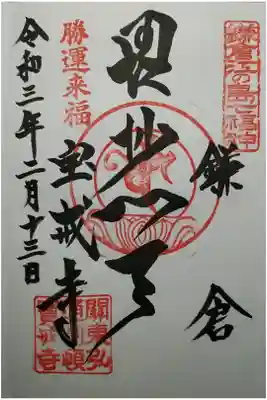 鎌倉江の島七福神
鎌倉
毘沙門天
宝戒寺
勝運来福
令和三年二月十三日